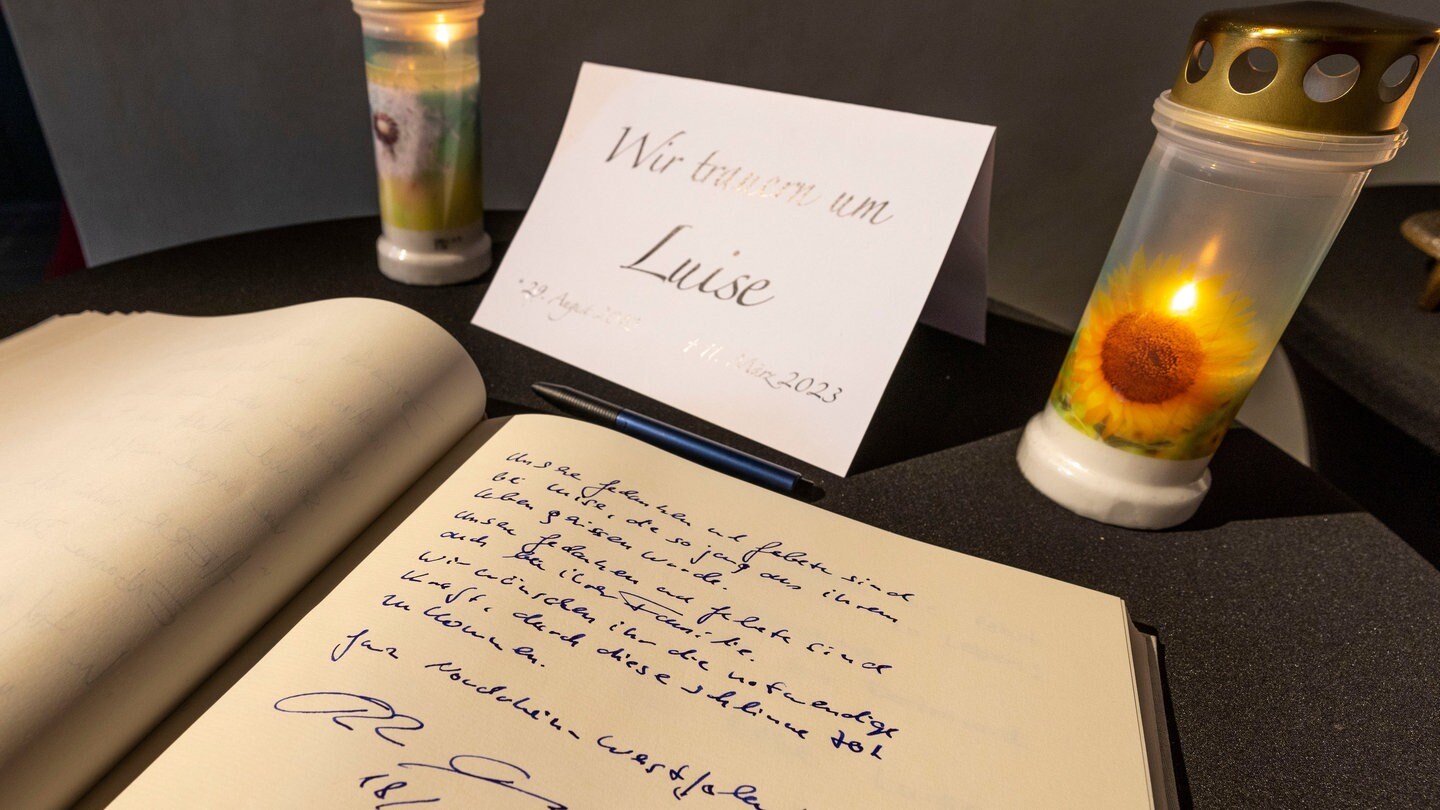 Wir trauern um
Luise
* 29. August
† 11. März 2023
Unsere Gedanken und Gebete sind
bei Luise, die so jung aus ihrem
Leben gerissen wurde.
Unsere Gedanken und Gebete sind
auch bei ihrer Familie.
Wir wünschen ihr die notwendige
Kraft, durch diese schlimme Zeit
zu kommen.
Nordrhein-Westfalen
18/